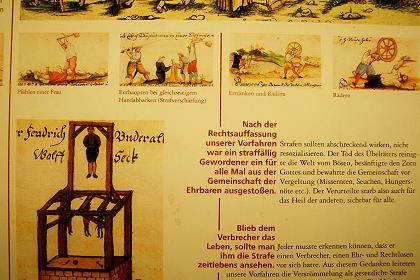 Pfählen einer Frau
Enthaupten bei gleichzeitigem
Handabhacken (Strafverschärfung)
Ertränken und Rädern
Rädern
Nach der
Rechtsauffassung
unserer Vorfahren
war ein straffällig
Gewordener ein für
alle Mal aus der
Gemeinschaft der
Ehrbaren ausgestoßen.
Strafen sollten abschreckend wirken, nicht
resozialisieren. Der Tod des Übeltäters reinig-
te die Welt vom Bösen, besänftigte den Zorn
Gottes und bewahrte die Gemeinschaft vor
Vergeltung (Missernten, Seuchen, Hungers-
nöte etc.). Der Verurteilte starb also auch für
das Heil der anderen, sichtbar für alle.
Blieb dem
Verbrecher das
Leben, sollte man
ihm die Strafe
zeitlebens ansehen.
Jeder musste erkennen können, dass er
einen Verbrecher, einen Ehr- und Rechtlosen
vor sich hatte. Aus diesem Gedanken leiteten
unsere Vorfahren die Verstümmelung als gesetzliche Strafe